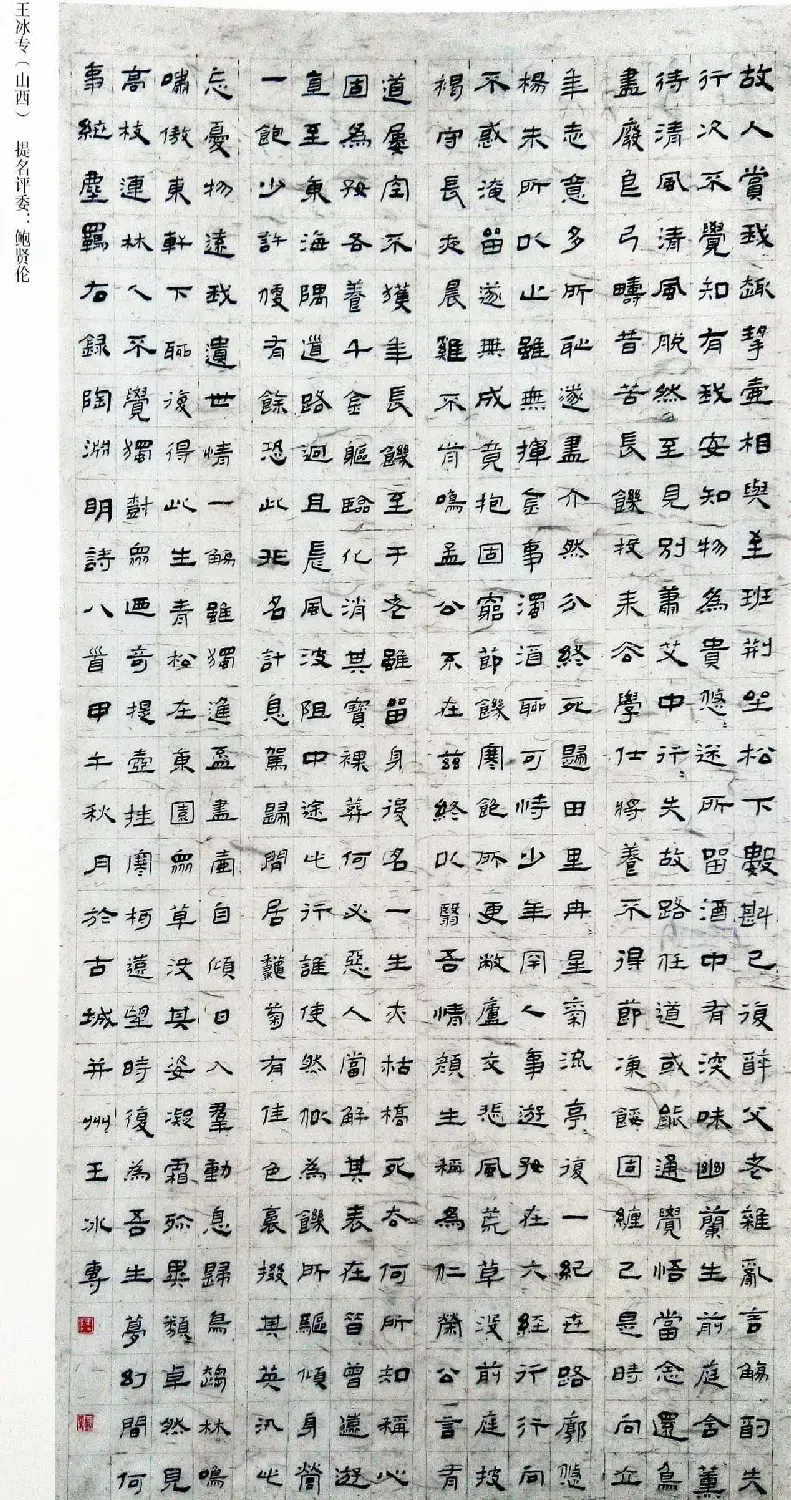 故人賞我趣挈壺相與至班荊坐松下數斟已復醉父老雜亂言觴酌失
行次不覺知有我安知物為貴悠々迷所留酒中有深味幽蘭生前庭含薰
待清風清風脫然至見別蕭艾中行々失故路任道或能通覺悟當念還鳥
盡廢良弓疇昔苦長饑投耒去學仕將養不得節凍餒固纏己是時向立
年志意多所恥遂盡介然分終死歸田里冉々星氣流亭々復一紀世路廓悠々
楊朱所以止雖無揮金事濁酒聊可恃少年罕人事遊好在六經行行向
不惑淹留遂無成竟抱固窮節饑寒飽所更敝廬交悲風荒草沒前庭披
褐守長夜晨雞不肯鳴孟公不在茲終以翳吾情顏生稱為仁榮公言有
道屢空不獲年長饑至于老雖留身後名一生亦枯槁死去何所知稱心
固為好各養千金軀臨化消其寶裸葬何必惡人當解其表在昔曾遠遊
直至東海隅道路迥且長風波阻中途此行誰使然似為饑所驅傾身營
一飽少許便有餘恐此非名計息駕歸閒居秋菊有佳色裛掇其英汎此
忘憂物遠我遺世情一觴雖獨進盃盡壺自傾日入羣動息歸鳥趨林鳴
嘯傲東軒下聊復得此生青松在東園眾草沒其姿凝霜殄異類卓然見
高枝連林人不覺獨樹眾迺奇提壺挂寒柯遠望時復為吾生夢幻間何
事紲塵羈右錄陶淵明詩八首甲午秋月於古城并州王冰專
王冰专（山西） 提名评委：鲍贤伦